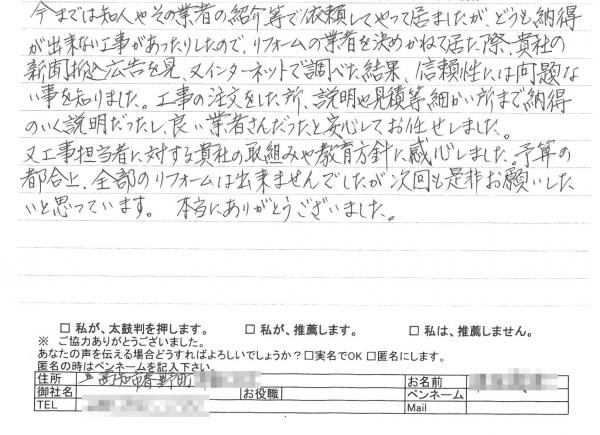 今までは知人やその業者の紹介等で依頼してやって居ましたが、どうも納得
が出来ない工事があったりしたので、リフォームの業者を決めかねて居た際、貴社の
新聞折込広告を見、又インターネットで調べた結果、信頼性には問題な
い事を知りました。工事の注文をした所、説明や見積等、細かい所まで納得
のいく説明だったし、良い業者さんだったと安心してお任せしました。
又工事担当者に対する貴社の取組みや教育方針に感心しました。予算の
都合上、全部のリフォームは出来ませんでしたが次回も是非お願いした
いと思っています。 本当にありがとうございました。
□ 私が、太鼓判を押します。 □ 私が、推薦します。 □ 私は、推薦しません。
※ ご協力ありがとうございました。
あなたの声を伝える場合どうすればよろしいでしょうか？□実名でOK □匿名にします。
匿名の時はペンネームを記入下さい。
住所 市春野町 お名前
御社名 お役職 ペンネーム
TEL Mail